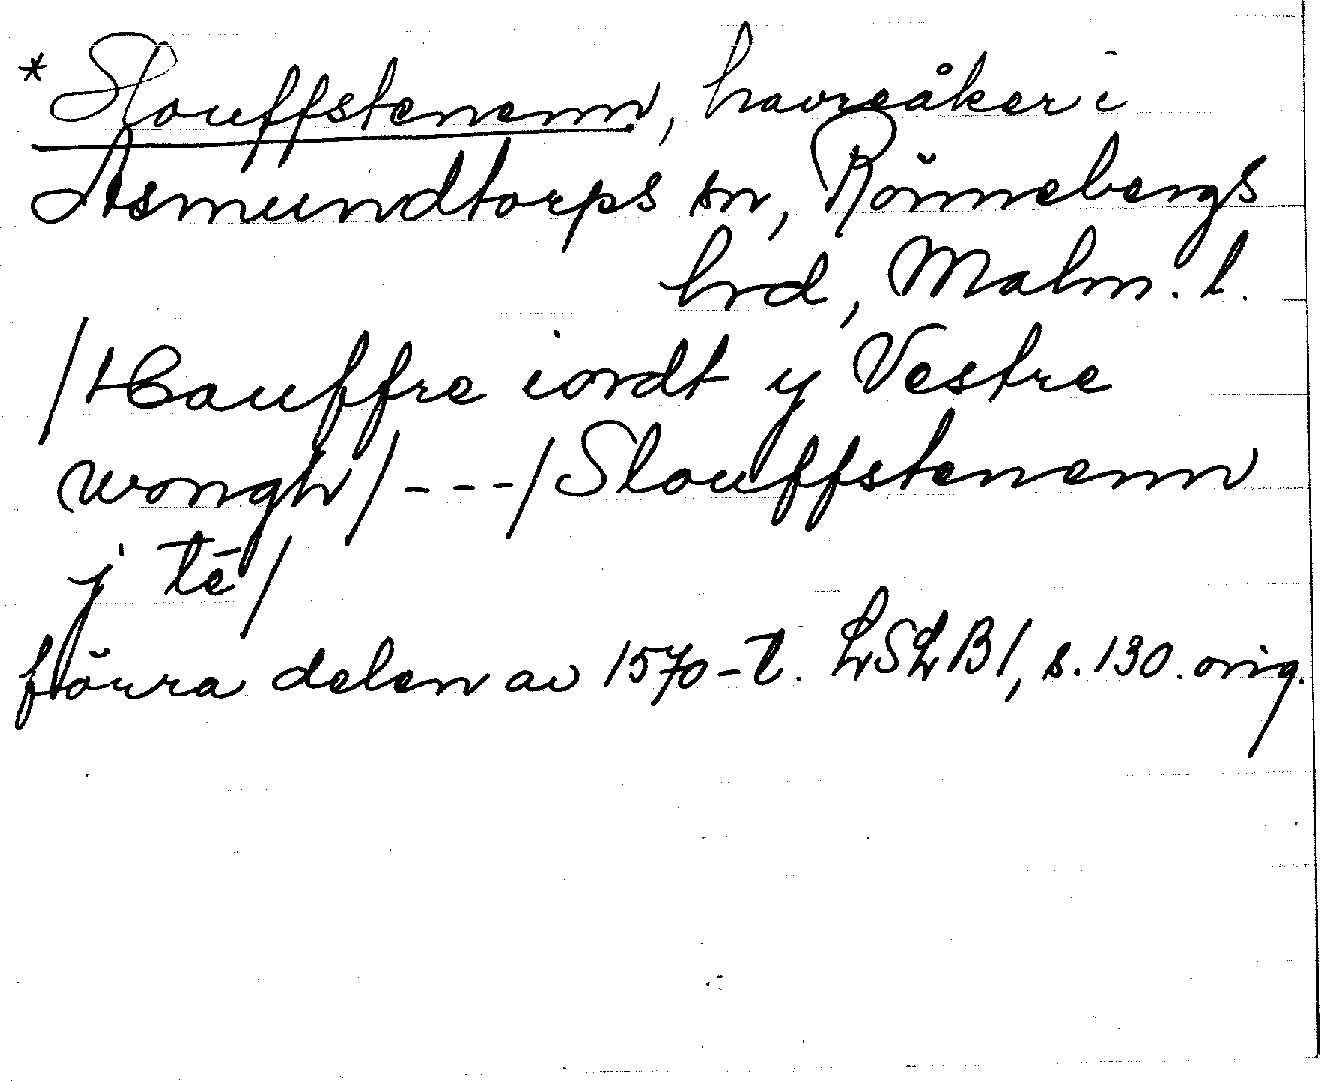 * Slouffstenenn, havreåker i
Asmundtorps sn, Rönnebergs
hrd, Malm. l.
/Hauffre iordt y Vestre
wongh/---/Slouffstenenn
j tē/
förra delen av 1570-t. LSLB1, s. 130. orig.